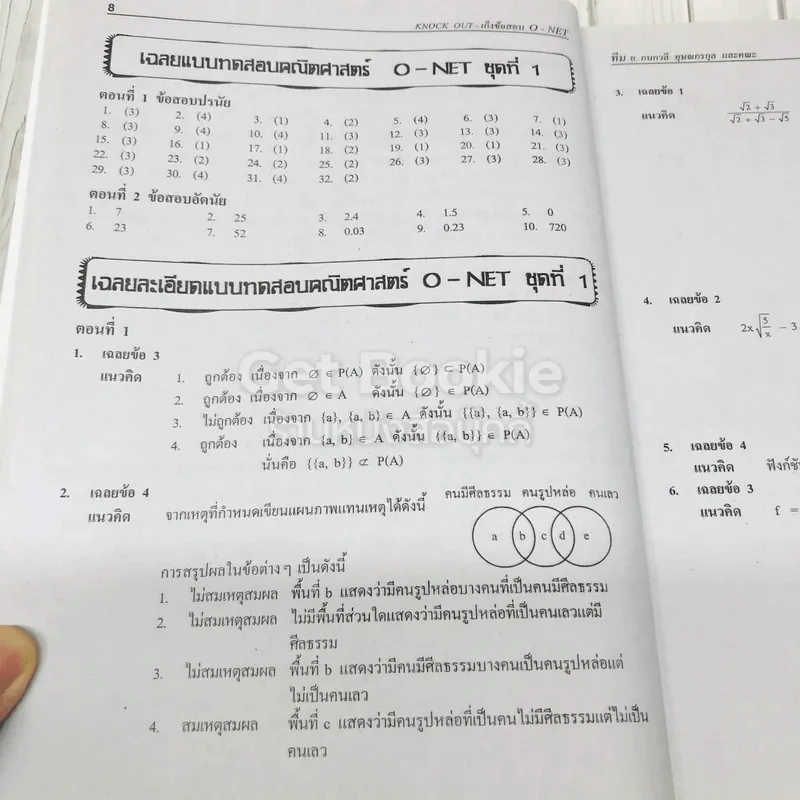 8
KNOCK OUT - เก็งข้อสอบ O - NET
เฉลยแบบทดสอบคณิตศาสตร์ O - NET ชุดที่ 1
ตอนที่ 1 ข้อสอบปรนัย
1. (3) 2. (4) 3. (1) 4. (2) 5. (4) 6. (3) 7. (1)
8. (3) 9. (4) 10. (4) 11. (3) 12. (3) 13. (3) 14. (3)
15. (3) 16. (1) 17. (1) 18. (2) 19. (1) 20. (1) 21. (3)
22. (3) 23. (2) 24. (2) 25. (2) 26. (3) 27. (3) 28. (3)
29. (3) 30. (4) 31. (4) 32. (2)
ตอนที่ 2 ข้อสอบอัตนัย
1. 7 2. 25 3. 2.4 4. 1.5 5. 0
6. 23 7. 52 8. 0.03 9. 0.23 10. 720
เฉลยละเอียดแบบทดสอบคณิตศาสตร์ O - NET ชุดที่ 1
ตอนที่ 1
1. เฉลยข้อ 3
แนวคิด 1. ถูกต้อง เนื่องจาก ∅ ∈ P(A) ดังนั้น {∅} ⊂ P(A)
2. ถูกต้อง เนื่องจาก ∅ ∈ A ดังนั้น {∅} ∈ P(A)
3. ไม่ถูกต้อง เนื่องจาก {a}, {a, b} ∈ A ดังนั้น {{a}, {a, b}} ∈ P(A)
4. ถูกต้อง เนื่องจาก {a, b} ∈ A ดังนั้น {{a, b}} ∈ P(A)
นั่นคือ {{a, b}} ⊄ P(A)
2. เฉลยข้อ 4
แนวคิด จากเหตุที่กำหนดเขียนแผนภาพแทนเหตุได้ดังนี้
คนมีศีลธรรม คนรูปหล่อ คนเลว
a b c d e
การสรุปผลในข้อต่าง ๆ เป็นดังนี้
1. ไม่สมเหตุสมผล พื้นที่ b แสดงว่ามีคนรูปหล่อบางคนที่เป็นคนมีศีลธรรม
2. ไม่สมเหตุสมผล ไม่มีพื้นที่ส่วนใดแสดงว่ามีคนรูปหล่อที่เป็นคนเลวแต่มี
ศีลธรรม
3. ไม่สมเหตุสมผล พื้นที่ b แสดงว่ามีคนมีศีลธรรมบางคนเป็นคนรูปหล่อแต่
ไม่เป็นคนเลว
4. สมเหตุสมผล พื้นที่ c แสดงว่ามีคนรูปหล่อที่เป็นคนไม่มีศีลธรรมแต่ไม่เป็น
คนเลว
Get Bookie
ทีม อ. กนกวลี อุษณกรกุล และคณะ
3. เฉลยข้อ 1
แนวคิด (√2 + √3)/(√2 + √3 - √5)
4. เฉลยข้อ 2
แนวคิด 2x√(5/x) - 3
5. เฉลยข้อ 4
แนวคิด
6. เฉลยข้อ 3
แนวคิด f =